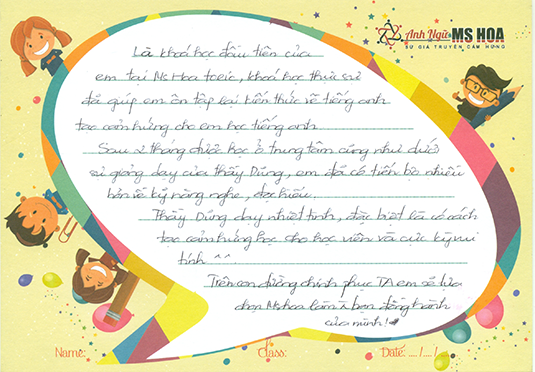 Anh Ngữ MS HOA
SỨ GIẢ TRUYỀN CẢM HỨNG
Là khoá học đầu tiên của
em tại Ms Hoa toeic, khoá học thực sự
đã giúp em ôn tập lại kiến thức về tiếng anh
tạo cảm hứng cho em học tiếng anh
Sau 2 tháng được học ở trung tâm cũng như dưới
sự giảng dạy của thầy Dũng, em đã có tiến bộ nhiều
hơn về kỹ năng nghe, đọc hiểu.
Thầy Dũng dạy nhiệt tình, đặc biệt là có cách
tạo cảm hứng học cho học viên và cực kỳ vui
tính ^^
Trên con đường chinh phục TA em sẽ lựa
chọn Ms hoa làm bạn đồng hành
của mình!
Name:
Class:
Date: ..../..../....